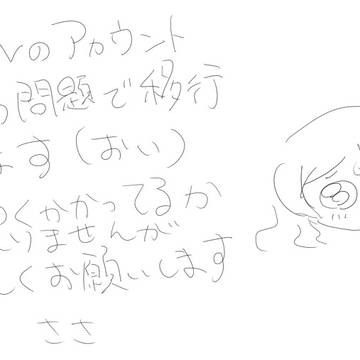 のアカウント
問題で移行
ます(おい)
くかかってるか
りませんが
しくお願いします
ささ